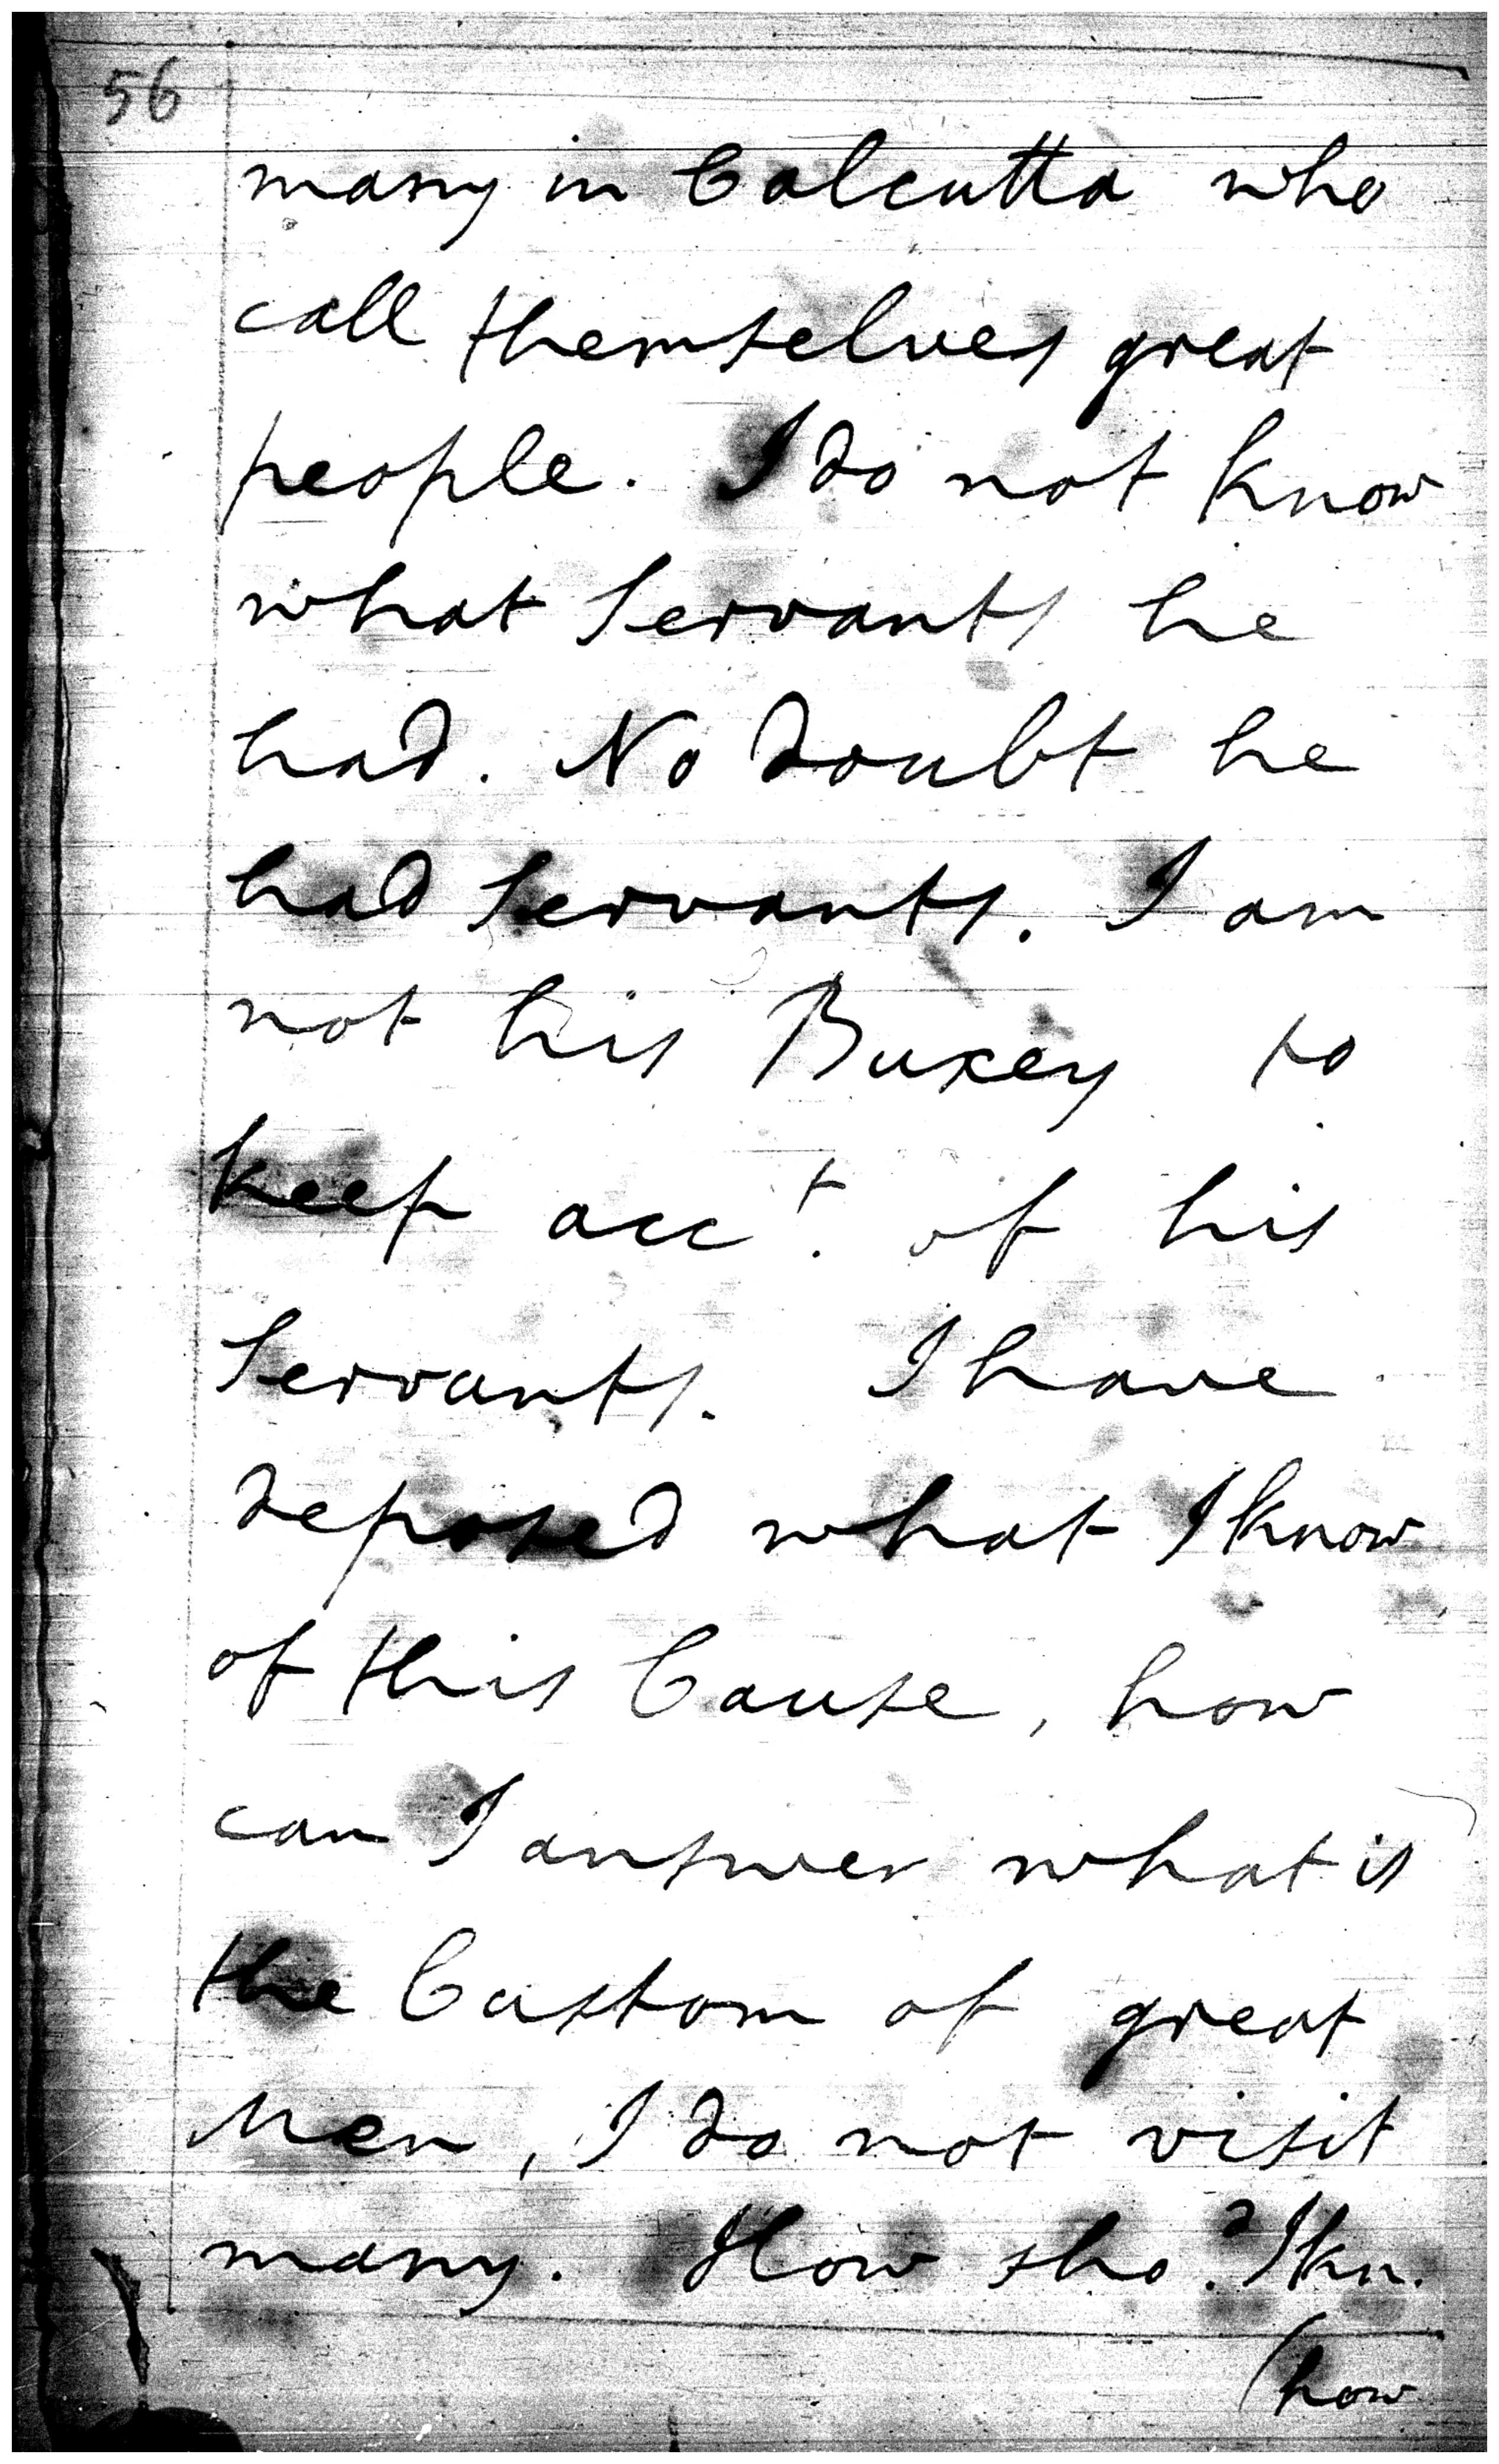 56
many in Calcutta who
call themselves great
people. I do not know
what Servants he
had. No doubt he
had Servants. I am
not his Buxey to
keep acc^t. of his
Servants. I have
deposed what I know
of this Cause, how
can I answer what is
the Custom of great
Men, I do not visit
many. How sho^d. I kn.
(how